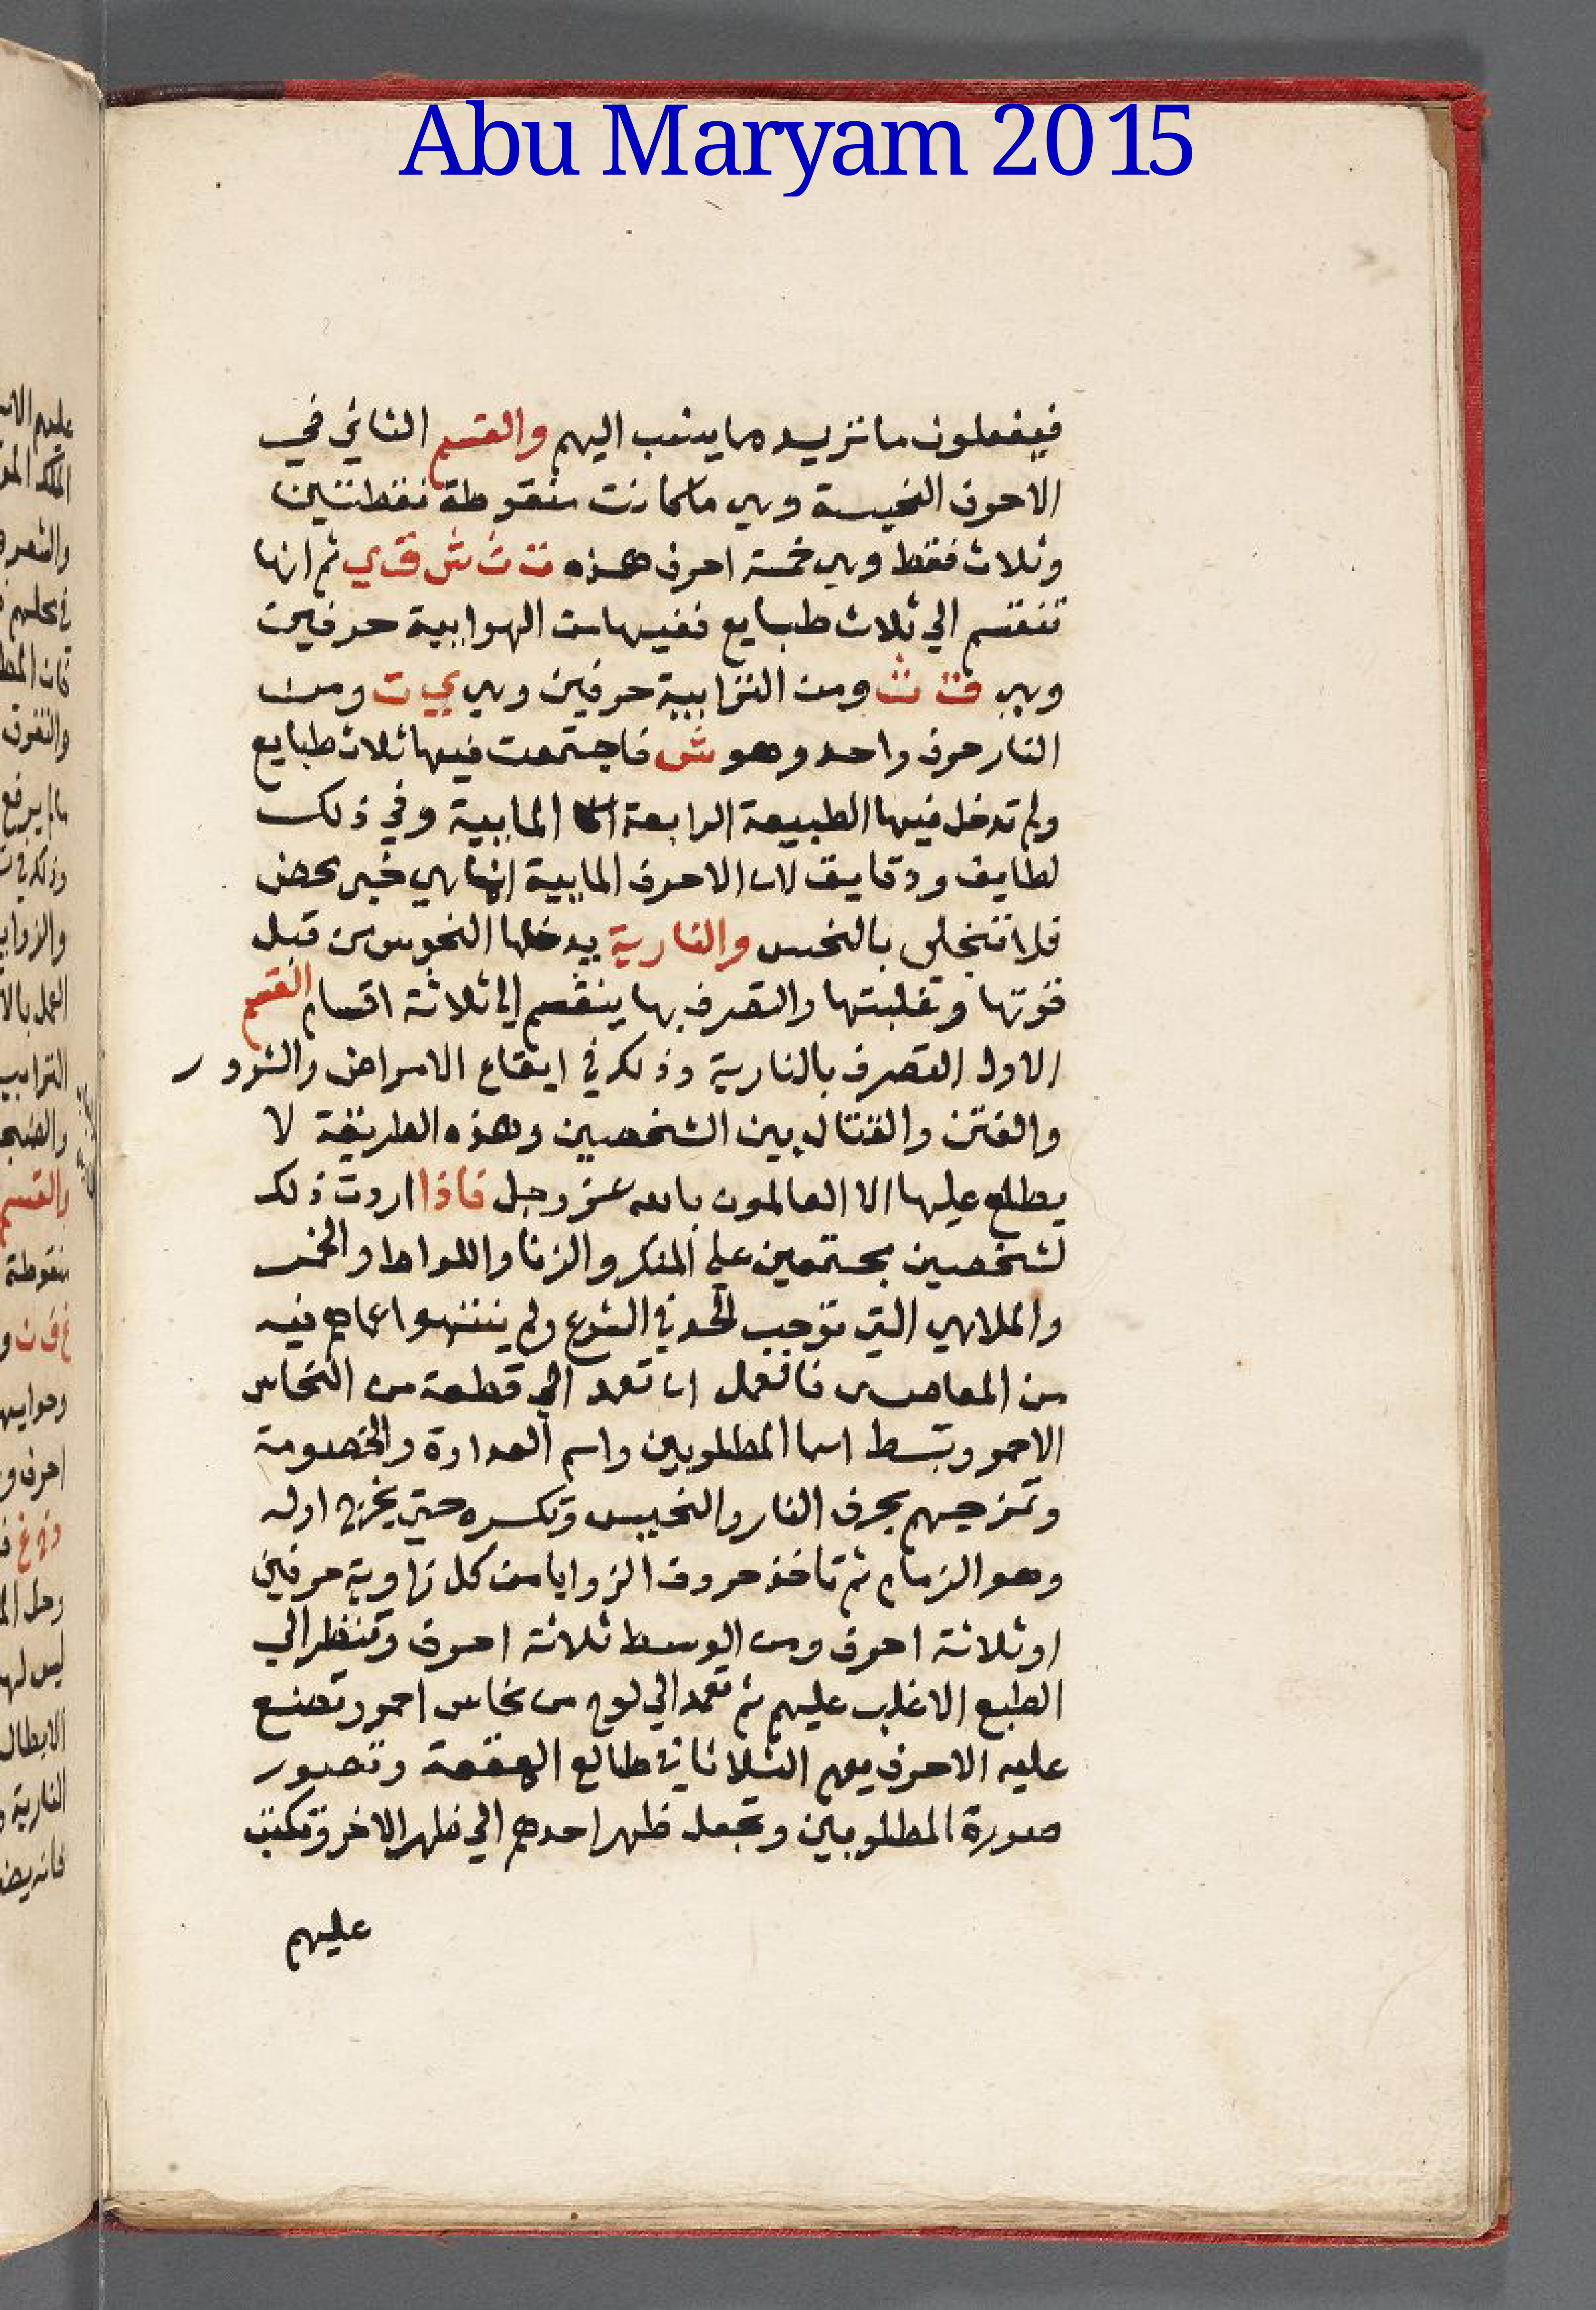 Abu Maryam 2015
فيفعلون ما تريد مما ينسب اليهم والقسم الثاني في
الاحرف النحيسة وهي ما كانت منقوطة نقطتين
وثلاث فقط وهي خمسة احرف هذه ت ث ش ق ي ثم انها
تنقسم الي ثلاث طبايع ففيها من الهوايية حرفين
وهي ق ث ومن الترابية حرفين وهي ي ت ومن
النار حرف واحد وهو ش فاجتمعت فيها ثلاث طبايع
ولم تدخل فيها الطبيعة الرابعة المايية وفي ذلك
لطايف ودقايق لان الاحرف المايية انها هي خير محض
فلا تنجلي بالنحس والنارية يدخلها النحوس من قبل
قوتها وتغلبتها والتصرف بها ينقسم الي ثلاثة اقسام القسم
الاول التصرف بالنارية وذلك في ايقاع الامراض والشرور
والفتن والقتال بين الشخصين وهذه الطريقة لا
يطلع عليها الا العالمون بالله عز وجل فاذا اردت ذلك
لشخصين مجتمعين علي المنكر والزنا واللواط والخمر
والملاهي التي توجب الحد في الشرع ولم ينتهوا عماهم فيه
من المعاصي فافعل ان تعمد الي قطعة من النحاس
الاحمر وتبسط اسما المطلوبين واسم العداوة والخصومة
وتمزجهم بحرف النار والنحيس وتكسره حتي يخرج اوله
وهو الزمام ثم تاخذ حروف الزوايا من كل زاوية حرفين
او ثلاثة احرف ومن الوسط ثلاثة احرف وتنظر الي
الطبع الاغلب عليهم ثم تعمد الي لوح من نحاس احمر وتصنع
عليه الاحرف يوم الثلاثا في طالع الهقعة وتصور
صورة المطلوبين وتجعل ظهر احدهم الي ظهر الاخر وتكتب
عليهم